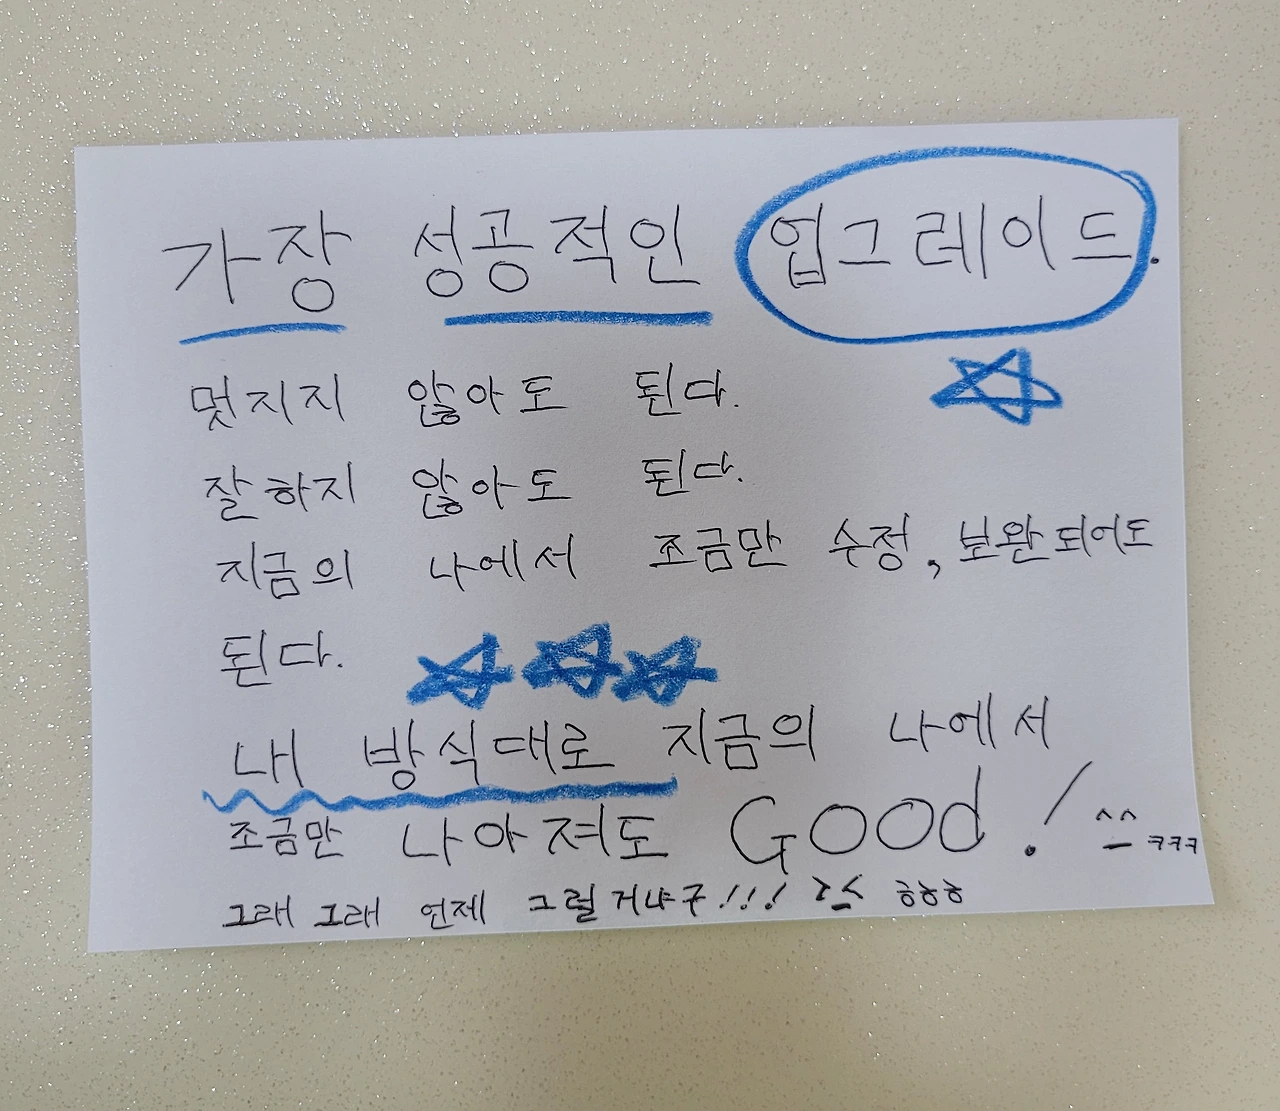 가장 성공적인 업그레이드.
멋지지 않아도 된다.
잘하지 않아도 된다.
지금의 나에서 조금만 수정, 보완되어도
된다.
내 방식대로 지금의 나에서
조금만 나아져도 Good! ^_^ ㅋㅋㅋ
그래 그래 언제 그럴거냐구!!! >_< ㅎㅎㅎ